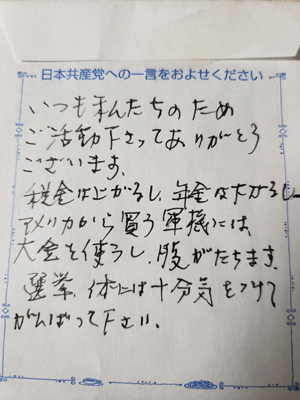 日本共産党への一言をおよせください
いつも私たちのため
ご活動下さってありがとう
ございます。
税金は上がるし、年金は下がるし
アメリカから買う軍機には、
大金を使うし、腹がたちます。
選挙、体には十分気をつけて
がんばって下さい。